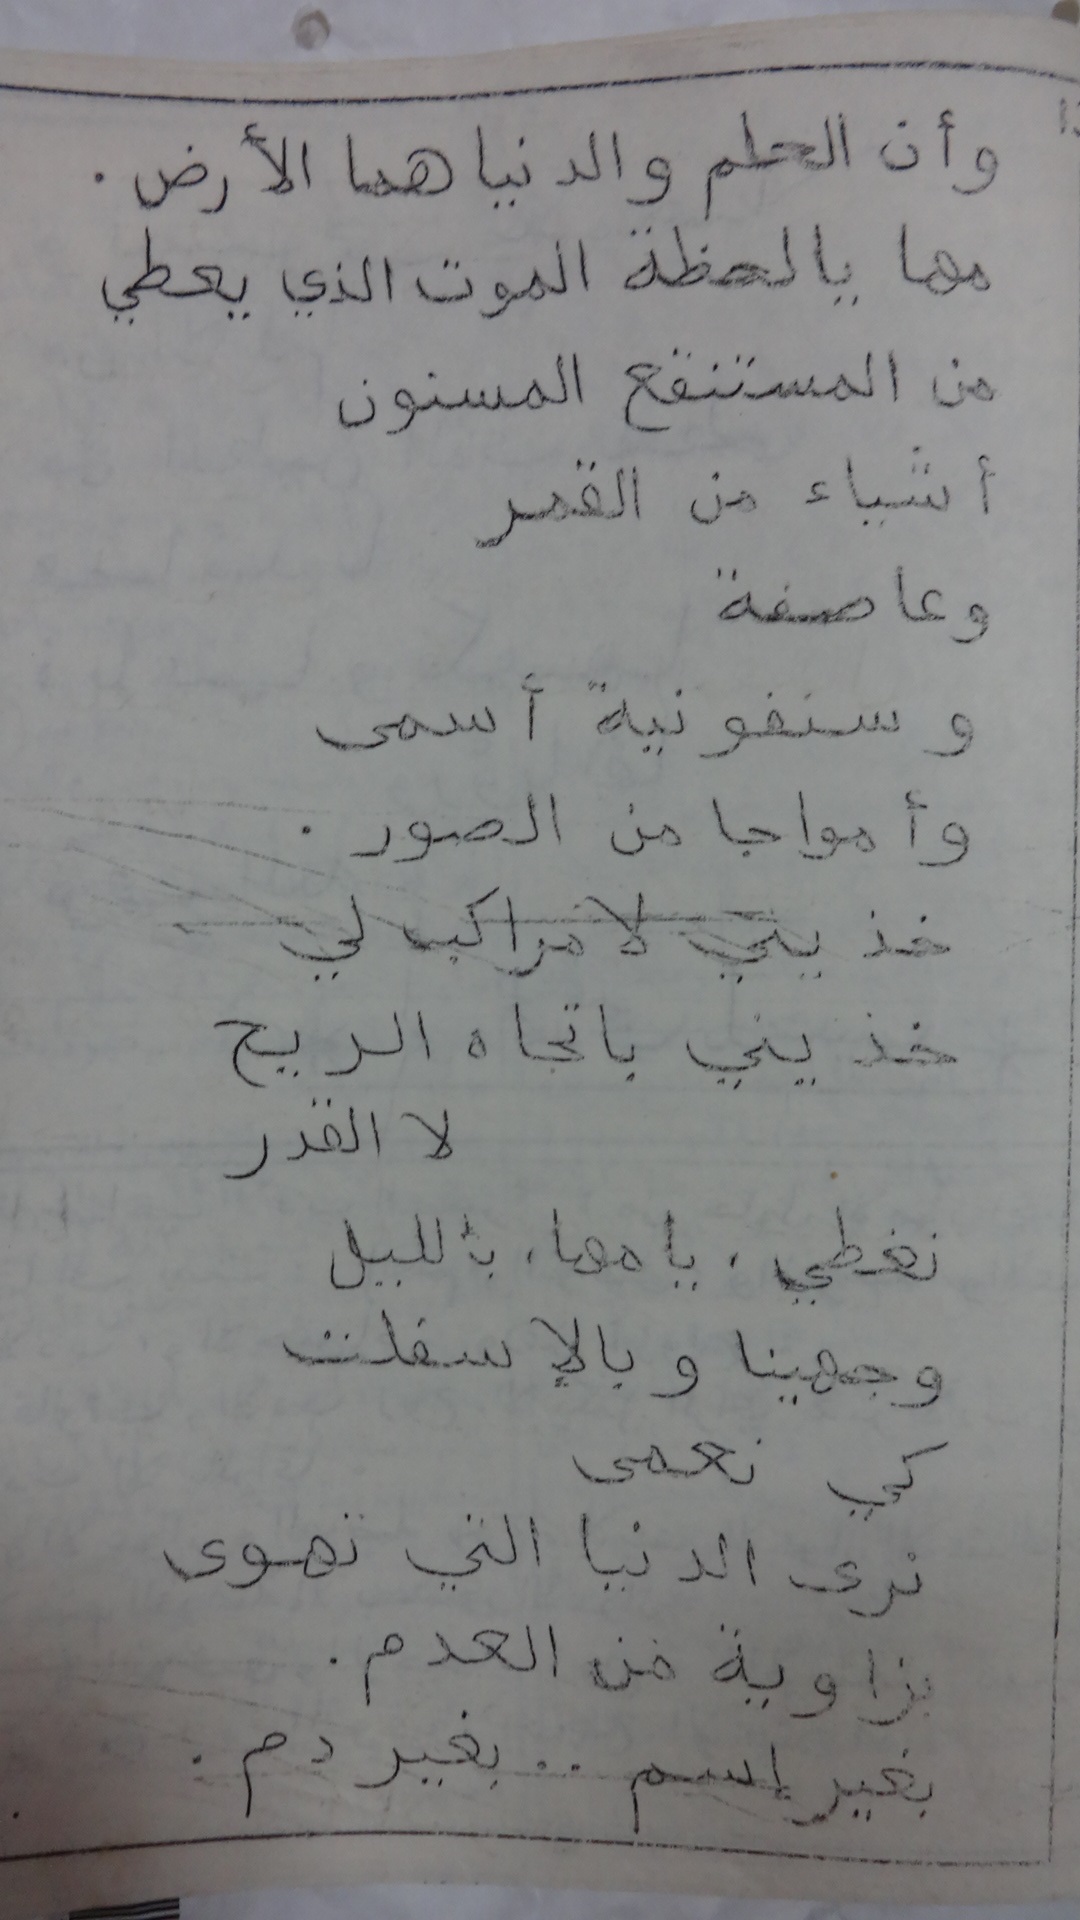 وأن الحلم والدنيا هما الأرض .
مها يالحظة الموت الذي يعطي
من المستنقع المسنون
أشياء من القمر
وعاصفة
و سنفونية أسمى
وأمواجا من الصور .
خذيني لا مراكب لي
خذيني باتجاه الريح
لا القدر
نغطي ، يا مها ، بالليل
وجهينا وبالإسفلت
كي نعمى
نرى الدنيا التي نهوى
بزاوية من العدم .
بغير إسم .. بغير دم .